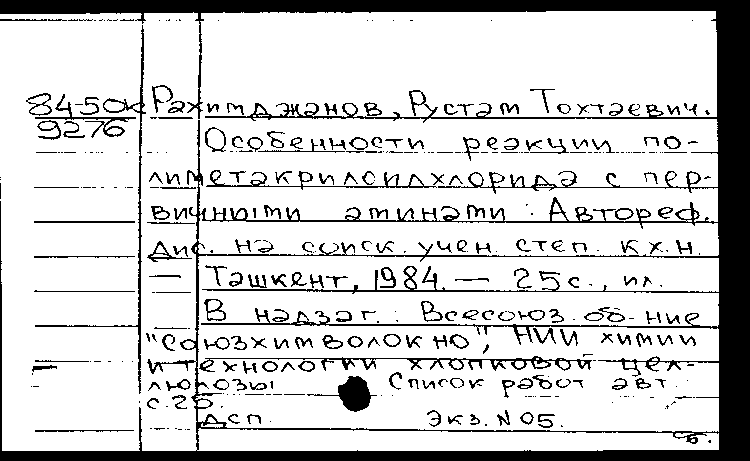 84-50к Рахимджанов, Рустам Тохтаевич.
9276
Особенности реакции по-
лиметакрилоилхлорида с пер-
вичными аминами : Автореф.
дис. на соиск. учен. степ. к.х.н.
— Ташкент, 1984. — 25 с., ил.
В надзаг. : Всесоюз. об-ние
"Союзхимволокно", НИИ химии
и технологии хлопковой цел-
люлозы Список работ авт.
с. 25
ДСП. Экз. N 05.